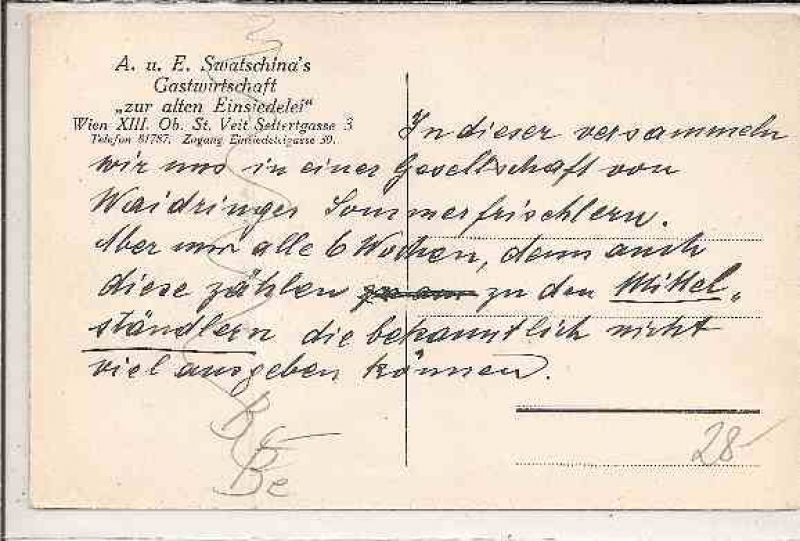 A. u. E. Swatschina's
Gastwirtschaft
„zur alten Einsiedelei"
Wien XIII. Ob. St. Veit Seitertgasse 3
Telefon 81787. Zugang Einsiedeleigasse 30.
In dieser versammeln
wir uns in einer Gesellschaft von
Waidringer Sommerfrischlern.
Aber nur alle 6 Wochen, denn auch
diese zählen zu den Mittel„
ständlern die bekanntlich nicht
viel ausgeben können.
28-